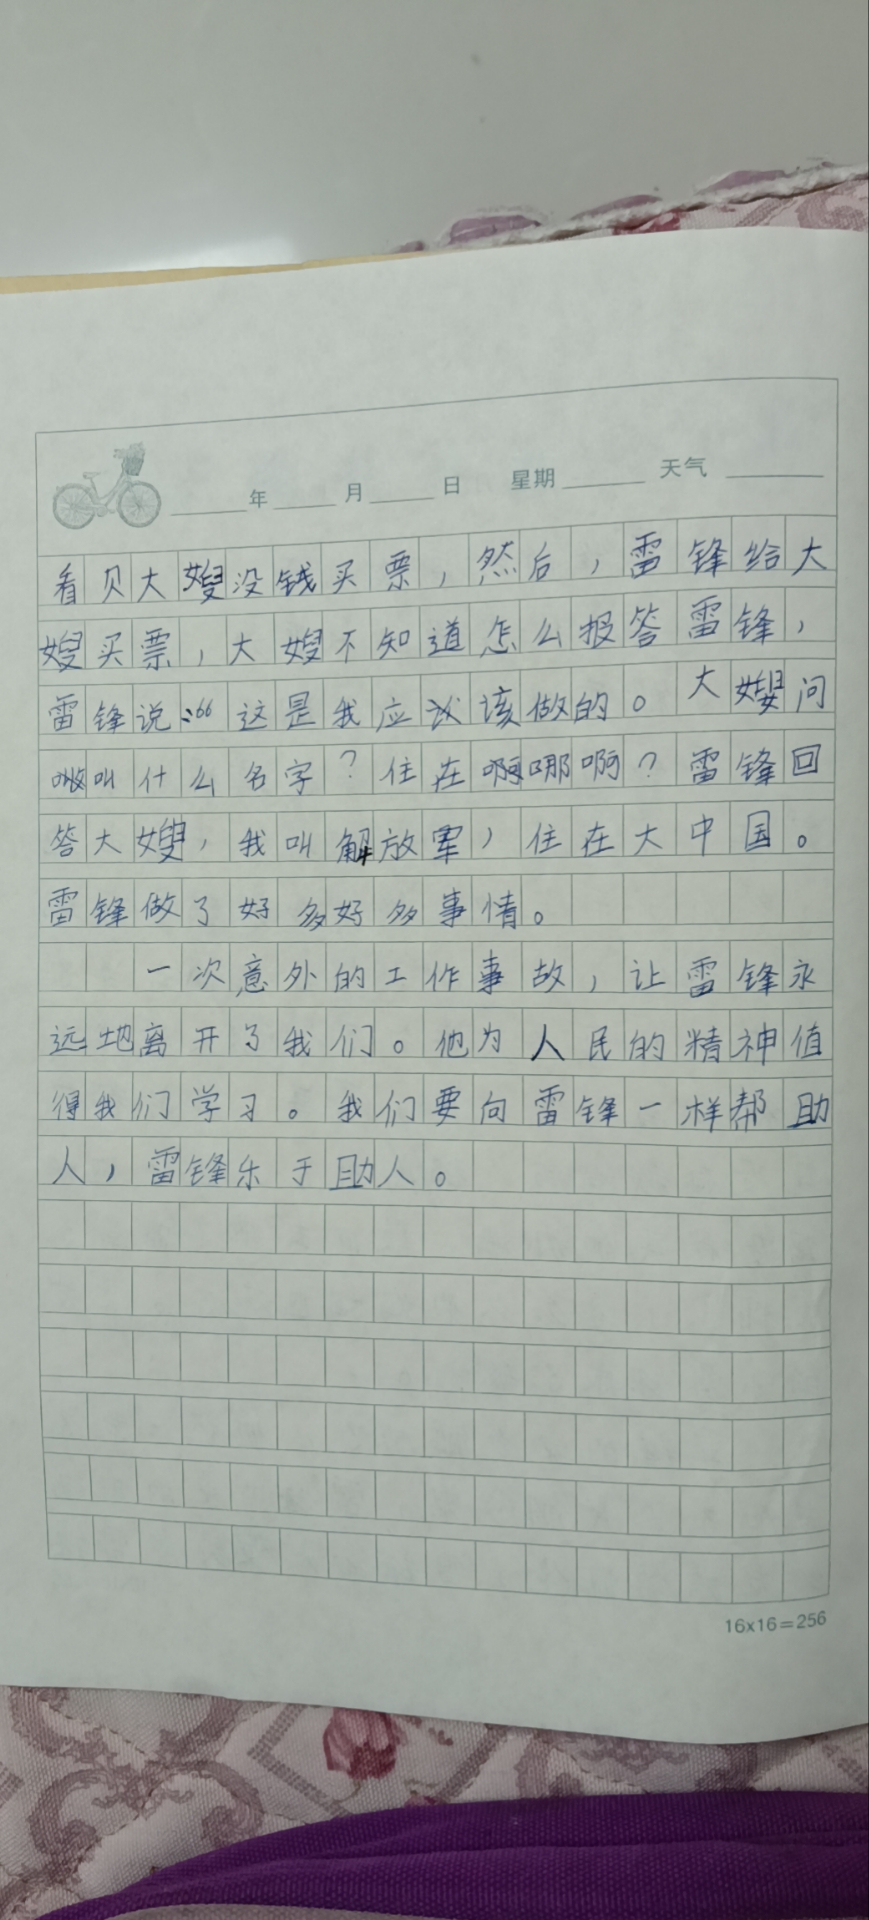 年 月 日 星期 天气
看贝大嫂没钱买票，然后，雷锋给大
嫂买票，大嫂不知道怎么报答雷锋，
雷锋说：“这是我应该做的。大嫂问
叫什么名字？住在啊哪啊？雷锋回
答大嫂，我叫解放军，住在大中国。
雷锋做了好多好多事情。
一次意外的工作事故，让雷锋永
远地离开了我们。他为人民的精神值
得我们学习。我们要向雷锋一样帮助
人，雷锋乐于助人。
16x16=256